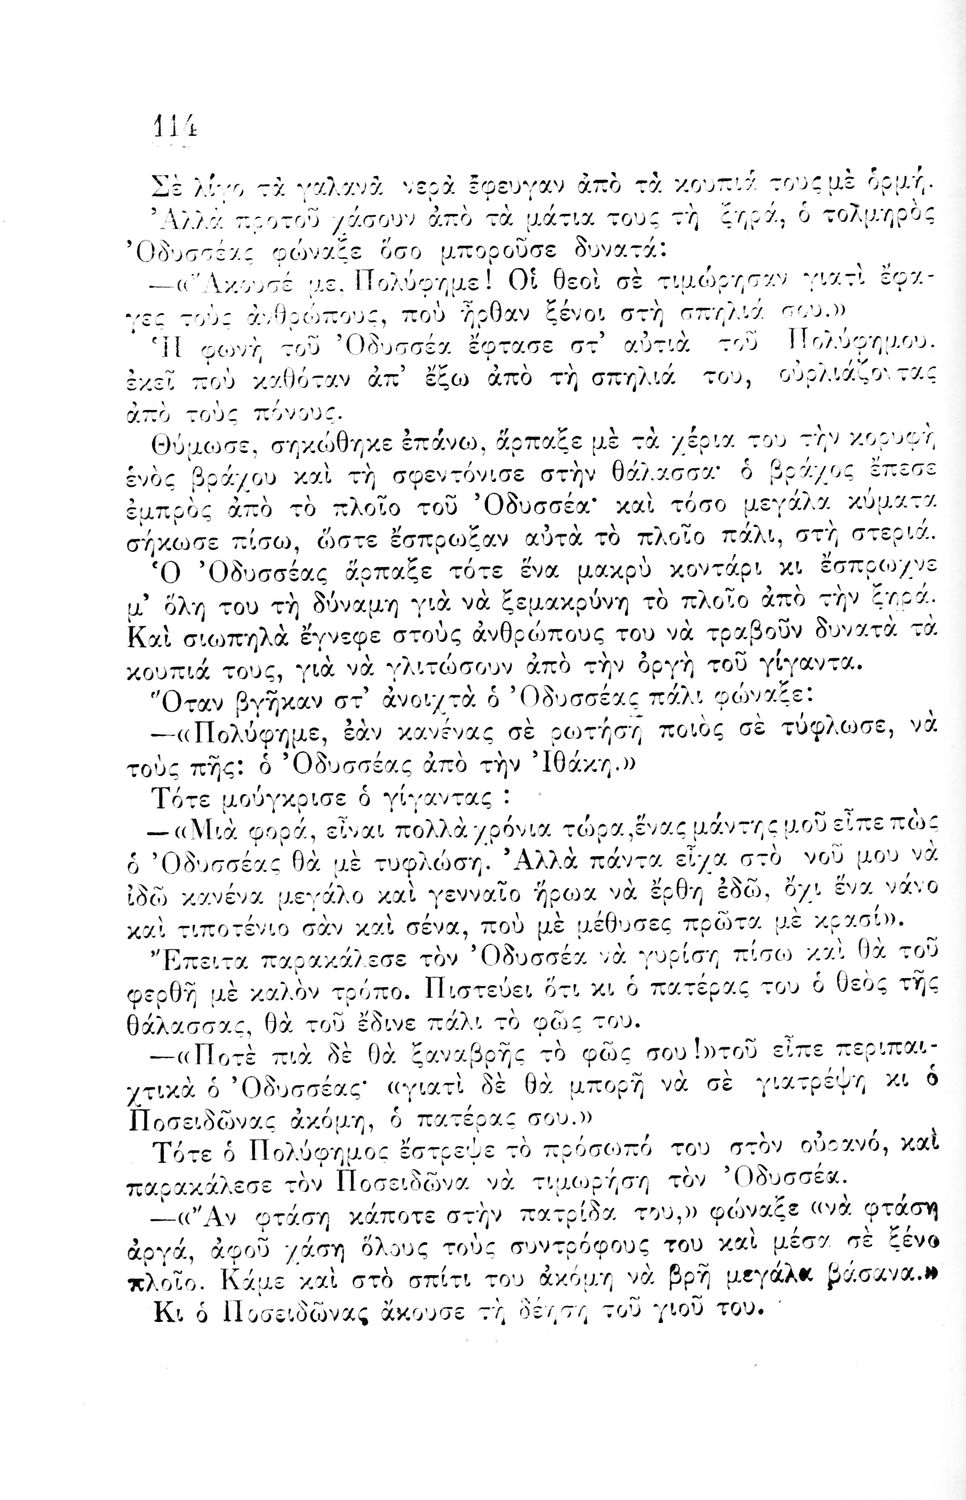 114
Σὲ λίγο τὰ γαλανὰ νερὰ ἔφευγαν ἀπὸ τὰ κουπιά τους μὲ ὁρμή.
Ἀλλὰ προτοῦ χάσουν ἀπὸ τὰ μάτια τους τὴ ξηρά, ὁ τολμηρὸς
Ὀδυσσέας φώναξε ὅσο μποροῦσε δυνατά:
—«Ἄκουσέ με, Πολύφημε! Οἱ θεοὶ σὲ τιμώρησαν γιατὶ ἔφα-
γες τοὺς ἀνθρώπους, ποὺ ἦρθαν ξένοι στὴ σπηλιά σου.»
Ἡ φωνὴ τοῦ Ὀδυσσέα ἔφτασε στ’ αὐτιὰ τοῦ Πολύφημου,
ἐκεῖ ποὺ καθόταν ἀπ’ ἔξω ἀπὸ τὴ σπηλιά του, οὐρλιάζοντας
ἀπὸ τοὺς πόνους.
Θύμωσε, σηκώθηκε ἐπάνω, ἅρπαξε μὲ τὰ χέρια του τὴν κορυφὴ
ἑνὸς βράχου καὶ τὴ σφεντόνισε στὴν θάλασσα· ὁ βράχος ἔπεσε
ἐμπρὸς ἀπὸ τὸ πλοῖο τοῦ Ὀδυσσέα· καὶ τόσο μεγάλα κύματα
σήκωσε πίσω, ὥστε ἔσπρωξαν αὐτὰ τὸ πλοῖο πάλι, στὴ στεριά.
Ὁ Ὀδυσσέας ἅρπαξε τότε ἕνα μακρὺ κοντάρι κι ἔσπρωχνε
μ’ ὅλη του τὴ δύναμη γιὰ νὰ ξεμακρύνη τὸ πλοῖο ἀπὸ τὴν ξηρά.
Καὶ σιωπηλὰ ἔγνεφε στοὺς ἀνθρώπους του νὰ τραβοῦν δυνατὰ τὰ
κουπιά τους, γιὰ νὰ γλιτώσουν ἀπὸ τὴν ὀργὴ τοῦ γίγαντα.
Ὅταν βγῆκαν στ’ ἀνοιχτὰ ὁ Ὀδυσσέας πάλι φώναξε:
—«Πολύφημε, ἐὰν κανένας σὲ ρωτήσῃ ποιὸς σὲ τύφλωσε, νὰ
τοὺς πῆς: ὁ Ὀδυσσέας ἀπὸ τὴν Ἰθάκη.»
Τότε μούγκρισε ὁ γίγαντας :
—«Μιὰ φορά, εἶναι πολλὰ χρόνια τώρα, ἕνας μάντης μοῦ εἶπε πὼς
ὁ Ὀδυσσέας θὰ μὲ τυφλώση. Ἀλλὰ πάντα εἶχα στὸ νοῦ μου νὰ
ἰδῶ κανένα μεγάλο καὶ γενναῖο ἥρωα νὰ ἔρθη ἐδῶ, ὄχι ἕνα νάνο
καὶ τιποτένιο σὰν καὶ σένα, ποὺ μὲ μέθυσες πρῶτα μὲ κρασί».
Ἔπειτα παρακάλεσε τὸν Ὀδυσσέα νὰ γυρίση πίσω καὶ θὰ τοῦ
φερθῆ μὲ καλὸν τρόπο. Πιστεύει ὅτι κι ὁ πατέρας του ὁ θεὸς τῆς
θάλασσας, θὰ τοῦ ἔδινε πάλι τὸ φῶς του.
—«Ποτὲ πιὰ δὲ θὰ ξαναβρῆς τὸ φῶς σου!» τοῦ εἶπε περιπαι-
χτικὰ ὁ Ὀδυσσέας· «γιατὶ δὲ θὰ μπορῆ νὰ σὲ γιατρέψη κι ὁ
Ποσειδῶνας ἀκόμη, ὁ πατέρας σου.»
Τότε ὁ Πολύφημος ἔστρεψε τὸ πρόσωπό του στὸν οὐρανό, καὶ
παρακάλεσε τὸν Ποσειδῶνα νὰ τιμωρήση τὸν Ὀδυσσέα.
—«Ἂν φτάση κάποτε στὴν πατρίδα του,» φώναξε «νὰ φτάση
ἀργά, ἀφοῦ χάση ὅλους τοὺς συντρόφους του καὶ μέσα σὲ ξένο
πλοῖο. Κάμε καὶ στὸ σπίτι του ἀκόμη νὰ βρῆ μεγάλα βάσανα.»
Κι ὁ Ποσειδῶνας ἄκουσε τὴ δέηση τοῦ γιοῦ του.